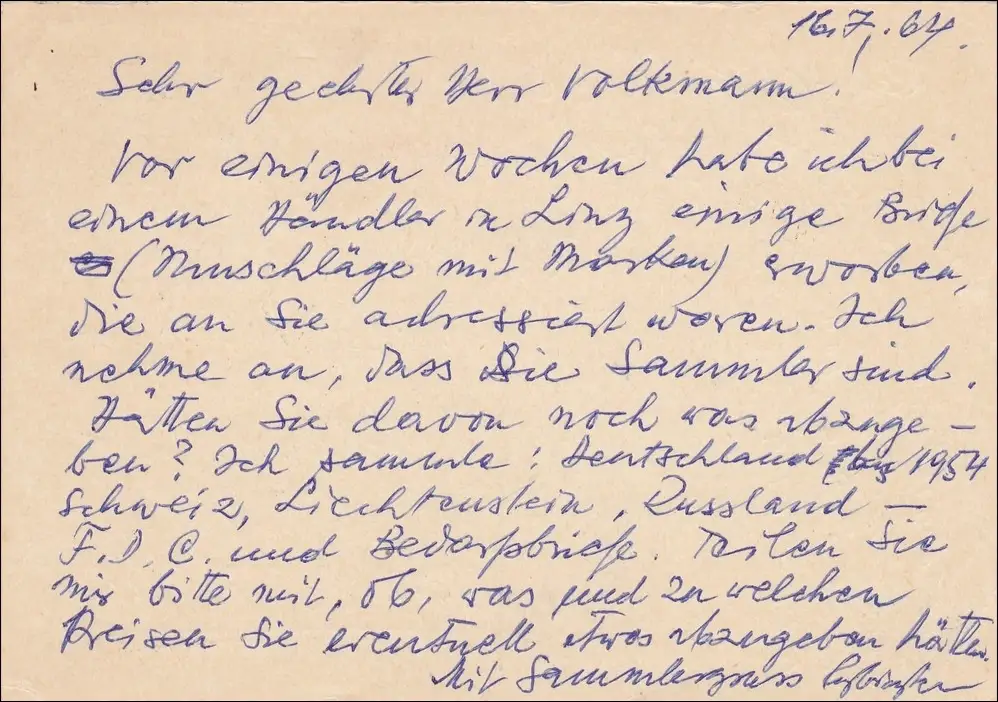 16.7.64.
Sehr geehrter Herr Volkmann!
Vor einigen Wochen habe ich bei
einem Händler in Linz einige Briefe
(Umschläge mit Marken) erworben,
die an Sie adressiert waren. Ich
nehme an, dass Sie Sammler sind.
Hätten Sie davon noch was abzuge-
ben? Ich sammle: Deutschland bis 1954
Schweiz, Liechtenstein, Russland –
F.D.C. und Bedarfsbriefe. Teilen Sie
mir bitte mit, ob, was und zu welchen
Preisen Sie eventuell etwas abzugeben hätten.
Mit Sammlergruss